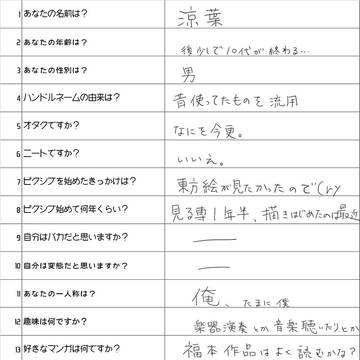 1 あなたの名前は? 涼葉
2 あなたの年齢は? 後少しで10代が終わる…
3 あなたの性別は? 男
4 ハンドルネームの由来は? 昔使ってたものを流用
5 オタクですか? なにを今更。
6 ニートですか? いいえ。
7 ピクシブを始めたきっかけは? 東方絵が見たかったので(ry
8 ピクシブ始めて何年くらい? 見る専1年半、描きはじめたのは最近
9 自分はバカだと思いますか? ——
10 自分は変態だと思いますか? ——
11 あなたの一人称は? 俺、たまに僕
12 趣味は何ですか? 楽器演奏とか音楽聴いたりとか
13 好きなマンガは何ですか? 福本作品はよく読むかな?